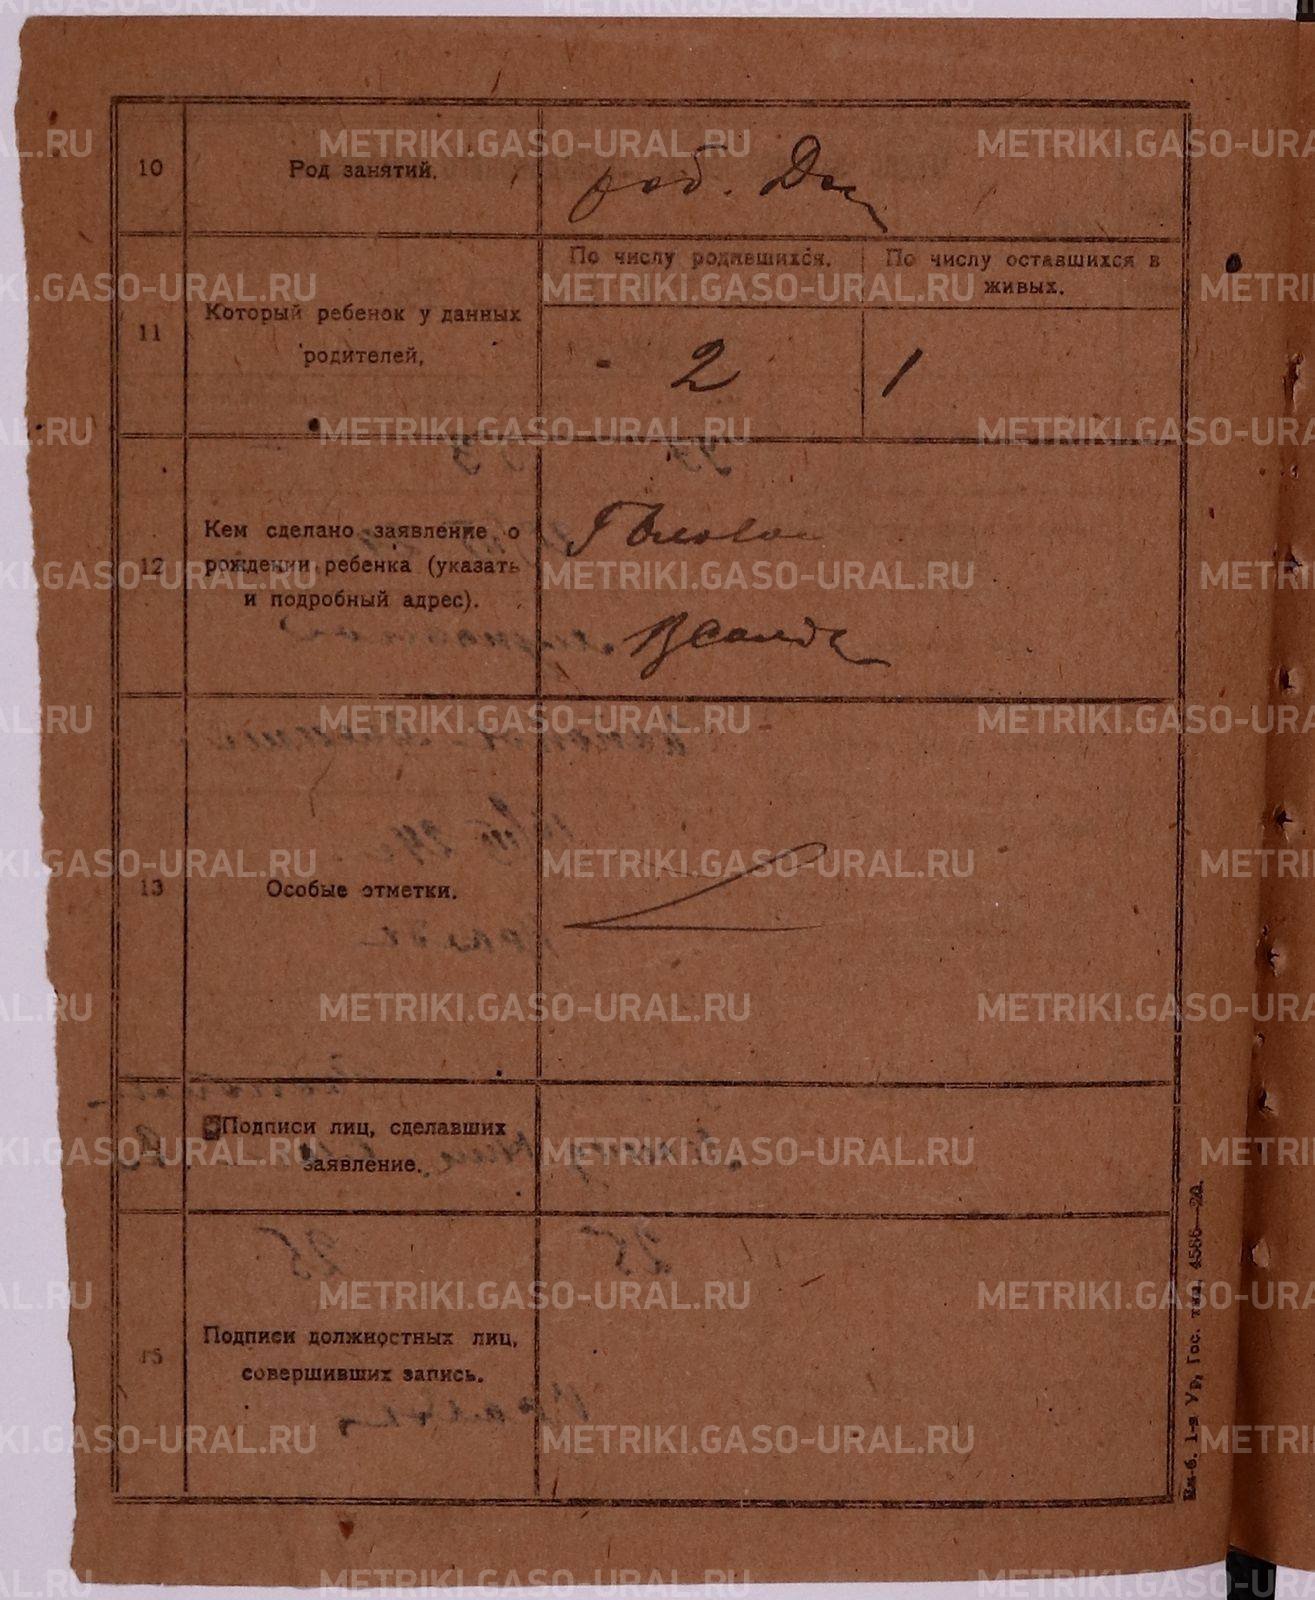 10
Род занятий.
раб.
11
Который ребенок у данных
родителей.
По числу родившихся.
По числу оставшихся в
живых.
2
1
12
Кем сделано заявление о
рождении ребенка (указать
и подробный адрес).
13
Особые отметки.
Подписи лиц, сделавших
заявление.
15
Подписи должностных лиц,
совершивших запись.
1-я Ур. Гос. тип. 4586—20.
METRIKI.GASO-URAL.RU